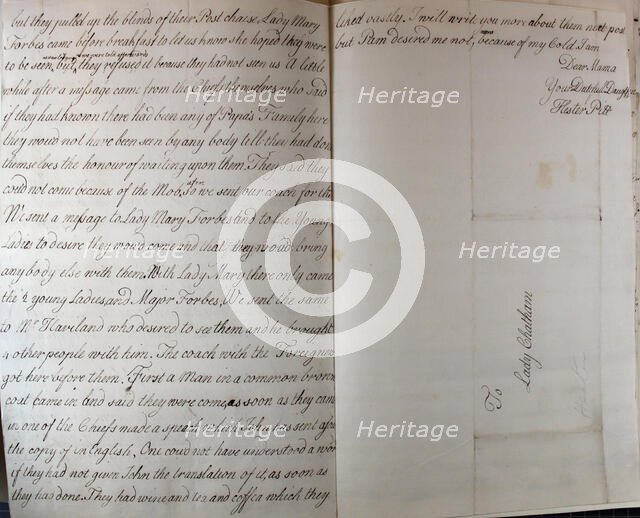 but they pulled up the blends of their Post chaise, Lady Mary
Forbes came before breakfast to let us know she hoped they were
to be seen, but they refused it because they had not seen us A little
while after a message came from the Chiefs themselves who said
if they had known there had been any of Papa's Family here
they wou'd not have been seen by any body tell they had don
themselves the honour of waiting upon them. They said they
could not come because of the Mob, so we sent our coach for th
We sent a message to Lady Mary Forbes and to the Young
Ladies to desire they wou'd come and that they wou'd bring
any body else with them. With Lady Mary there only came
the 2 young Ladies and Major Forbes. We sent the same
to Mr. Haviland who desired to see them and he brought
4 other people with him. The coach with the Foreigne
got here before them. First a Man in a common brown
coat came in and said they were come, as soon as they cam
in one of the Chiefs made a speech
the copy of in English, One cou'd not have understood a wor
if they had not given John the translation of it, as soon as
they has done. They had wine and tea and coffea which they
liked vastly. I will writ you more about them next post
but Pam desired me not, because of my Cold. I am
Dear Mama
Your Dutifull Daughter
Hester Pitt
To
Lady Chatham
Heritage
Heritage
Heritage
Heritage
Heritage
Heritage
Heritage
C